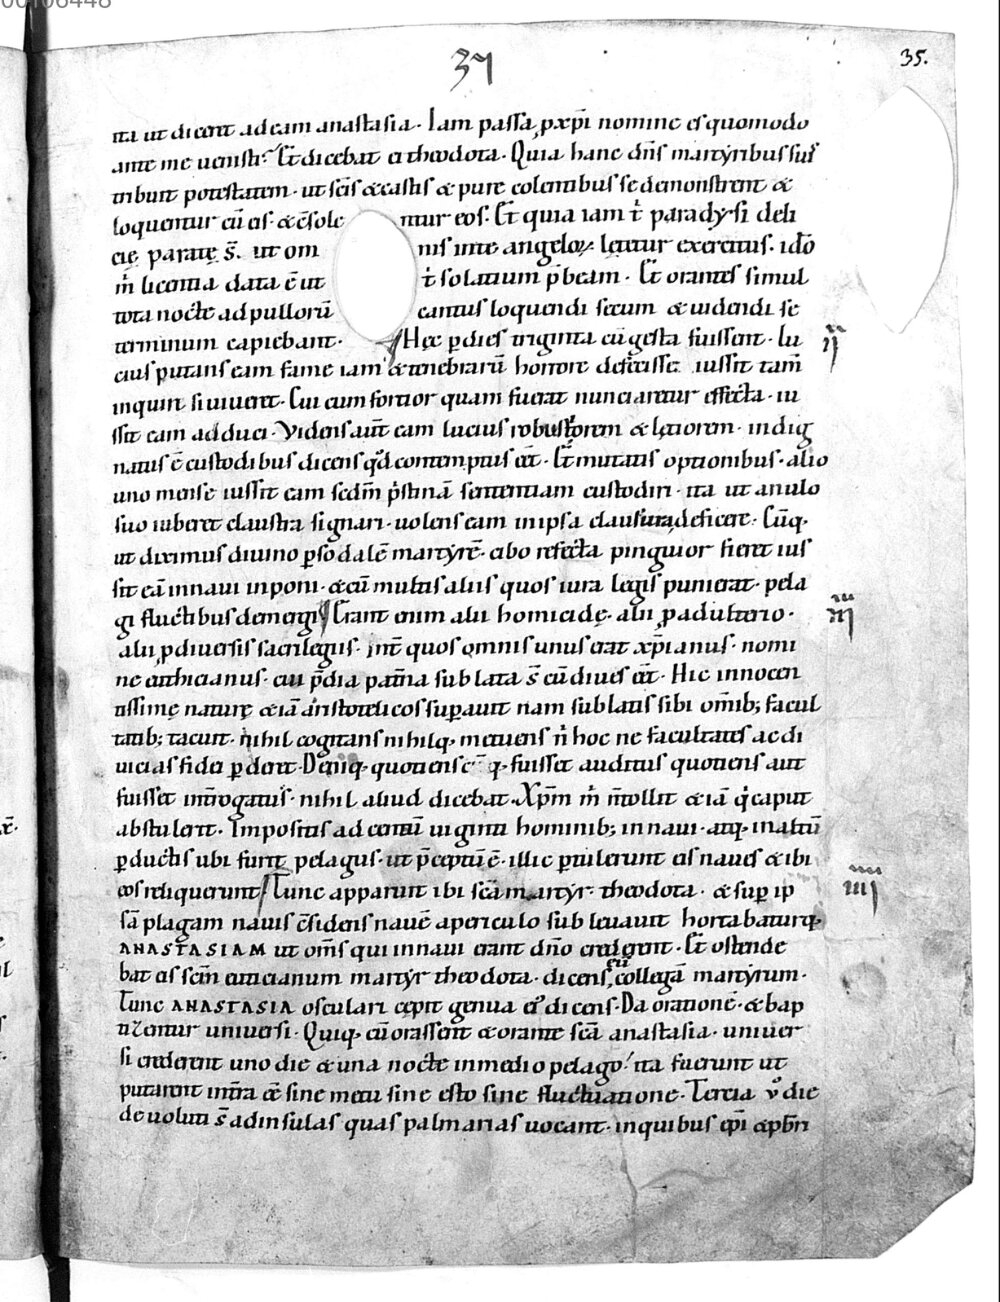 00106448
37
35.
ita ut dicerit ad eam anastasia. Iam passa ꝓ xp̄i nomine es quomodo
ante me uenisti? Et dicebat ei theodota. Quia hanc dn̄s martyribus suis
tribuit potestatem. ut sc̄is & castis & pure colentibus se demonstrent &
loquentur cū eis. & c̄sole ntur eos. Et quia iam t̄ paradysi deli
cię paratę s̄. ut om nis inte angeloꝝ lętetur exercitus. ido
m̄ licentia data ē ut t̄ solatium p̄beam. Et orantes simul
tota nocte ad pullorū cantus loquendi secum & uidendi se
terminum capiebant. Hęc ꝑ dies triginta cū gesta fuissent. lu
cius putans eam fame iam & tenebrarū horrore defecisse iussit tam̄
inquiri si uiueret. Cui cum fortior quam fuerat nunciaretur effecta. iu
ssit eam adduci. Videns aut̄ eam lucius robustiorem & lętiorem. indig
natus ē custodibus dicens qd̄ contemptus eēt. Et mutatis optionibus. alio
uno mense iussit eam sedm̄ p̓stinā sententiam custodiri. ita ut anulo
suo iuberet claustra signari. uolens eam in ipsa clausura deficere. Cūq.
ut diximus diuino ꝑ sodalē martyrē. cibo refecta pinguior fieret ius
sit eā in naui inponi. & cū multis aliis quos iura legis punierat. pela
gi fluctibus demergi. Erant enim alii homicidę. alii ꝓ adulterio.
alii ꝓ diuersis sacrilegiis. Int̄ quos omnis unus erat xp̄ianus. nomi
ne euthicianus. cui p̄dia pat̄na sublata s̄ cū diues eēt. Hic innocen
tissimę naturę & iā aristotelicos suꝑauit nam sublatis sibi om̄ib; facul
tatib; tacuit. nihil cogitans nihilq. metuens n̄ hoc ne facultates ac di
uicias fidei ꝑderet. Deniq. quotienscūq. fuisset auditus quotiens aut
fuisset int̄rogatus. nihil aliud dicebat. Xp̄m m̄ n̄ tollit & iā q̄ caput
abstulerit. Impositis ad centū uiginti hominib; in naui. atq. in altū
ꝑductis ubi furit pelagus. ut p̄ceptū ē. illic ꝑtulerunt eis naues & ibi
eos reliquerunt. Tunc apparuit ibi sc̄a martyr theodota. & suꝑ ip
sā plagam nauis c̄sidens nauē a periculo subleuauit hortabaturq.
ANASTASIAM ut om̄s qui in naui erant dn̄o crederent. Et ostende
bat eis sc̄m euticianum martyr theodota. dicens eū collegā martyrum.
Tunc ANASTASIA osculari cępit genua ei dicens. Da orationē. & bap
tizentur uniuersi. Quiq. cū orassent & orante sc̄ā anastasia. uniuer
si crederent uno die & una nocte in medio pelago. ita fuerunt ut
putarent int̄ra eē sine metu sine esto sine fluctuatione. Tercia v̓ die
deuoluti s̄ ad insulas quas palmarias uocant. in quibus ep̄i & p̄bri